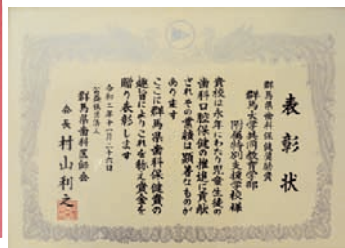 表彰状
群馬県歯科保健賞励賞
群馬大学共同教育学部
附属特別支援学校様
貴校は永年にわたり児童生徒の
歯科口腔保健の推進に貢献
されその業績は顕著なものが
あります
ここに群馬県歯科保健賞の
趣旨によりこれを称え賞金を
贈り表彰します
令和二年十一月二十六日
公益社団法人
群馬県歯科医師会
会長 村山利之